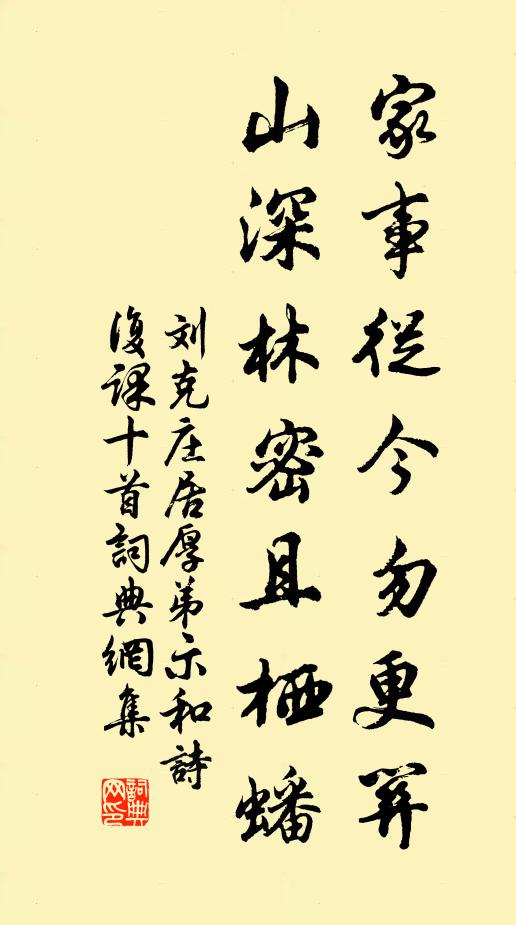 家事從今勿更關
山深林密且栖蟠
刘克庄居厚弟示和詩
復課十首詞典網集
詞典
网印